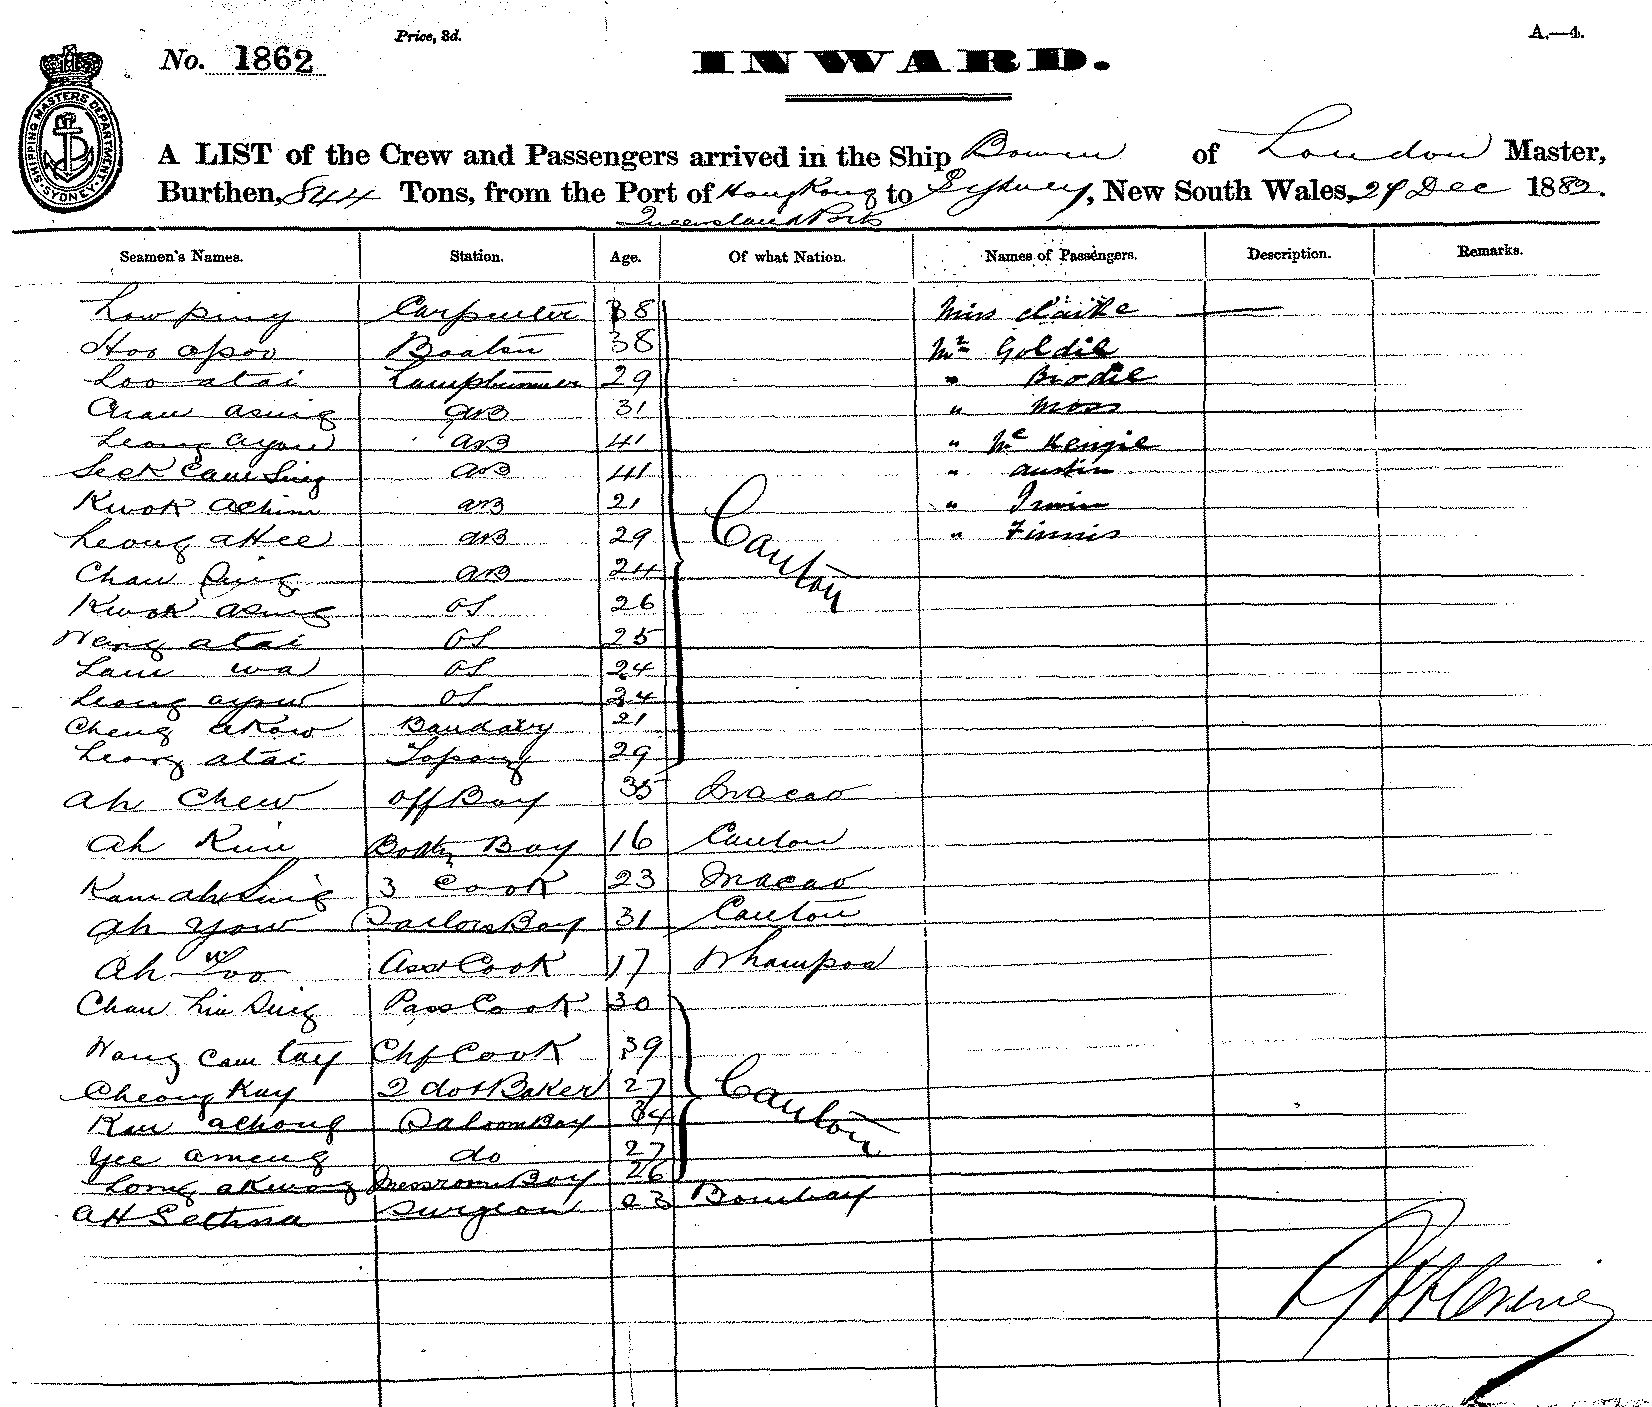 Price, 3d.
A.—4.
No. 1862
INWARD.
SHIPPING MASTERS DEPARTMENT SYDNEY
A LIST of the Crew and Passengers arrived in the Ship Bowen of London Master,
Burthen, 844 Tons, from the Port of HongKong to Sydney, New South Wales, 29 Dec 1882.
Queensland Ports
Seamen's Names. Station. Age. Of what Nation. Names of Passengers. Description. Remarks.
Low Ping Carpenter 38 Miss Clarke —
Hoo apoo Boatsn 38 Mr Goldie
Loo atai Lamptrimmer 29 " Brodie
asing AB 31 " Moss
Leong ayou AB 41 " McKenzie
Seek Cam Sing AB 41 " Austin
Kwok achim AB 21 " Irwin
Leong aHee AB 29 " Finnis
Chan Ping AB 24
Canton
Kwok asing OS 26
Wang atai OS 25
Lam wa OS 24
Leong ayow OS 24
Cheng akow 21
Leong atai Topang 29
ah Chew off Boy 35 Macao
ah Kim Boy 16 Canton
Kam ah Sing 3 Cook 23 Macao
ah Yow Sailors Boy 31 Canton
ah Asst Cook 17 Whampoa
Chan Lin Sing Pass Cook 30
Wang Cam Tay Chf Cook 39
Cheong Kay 2 do & Baker 27
Canton
achong Saloon Boy 34
Yee ameng do 27
Long akwong Messroom Boy 26
aH Sethna Surgeon 23 Bombay